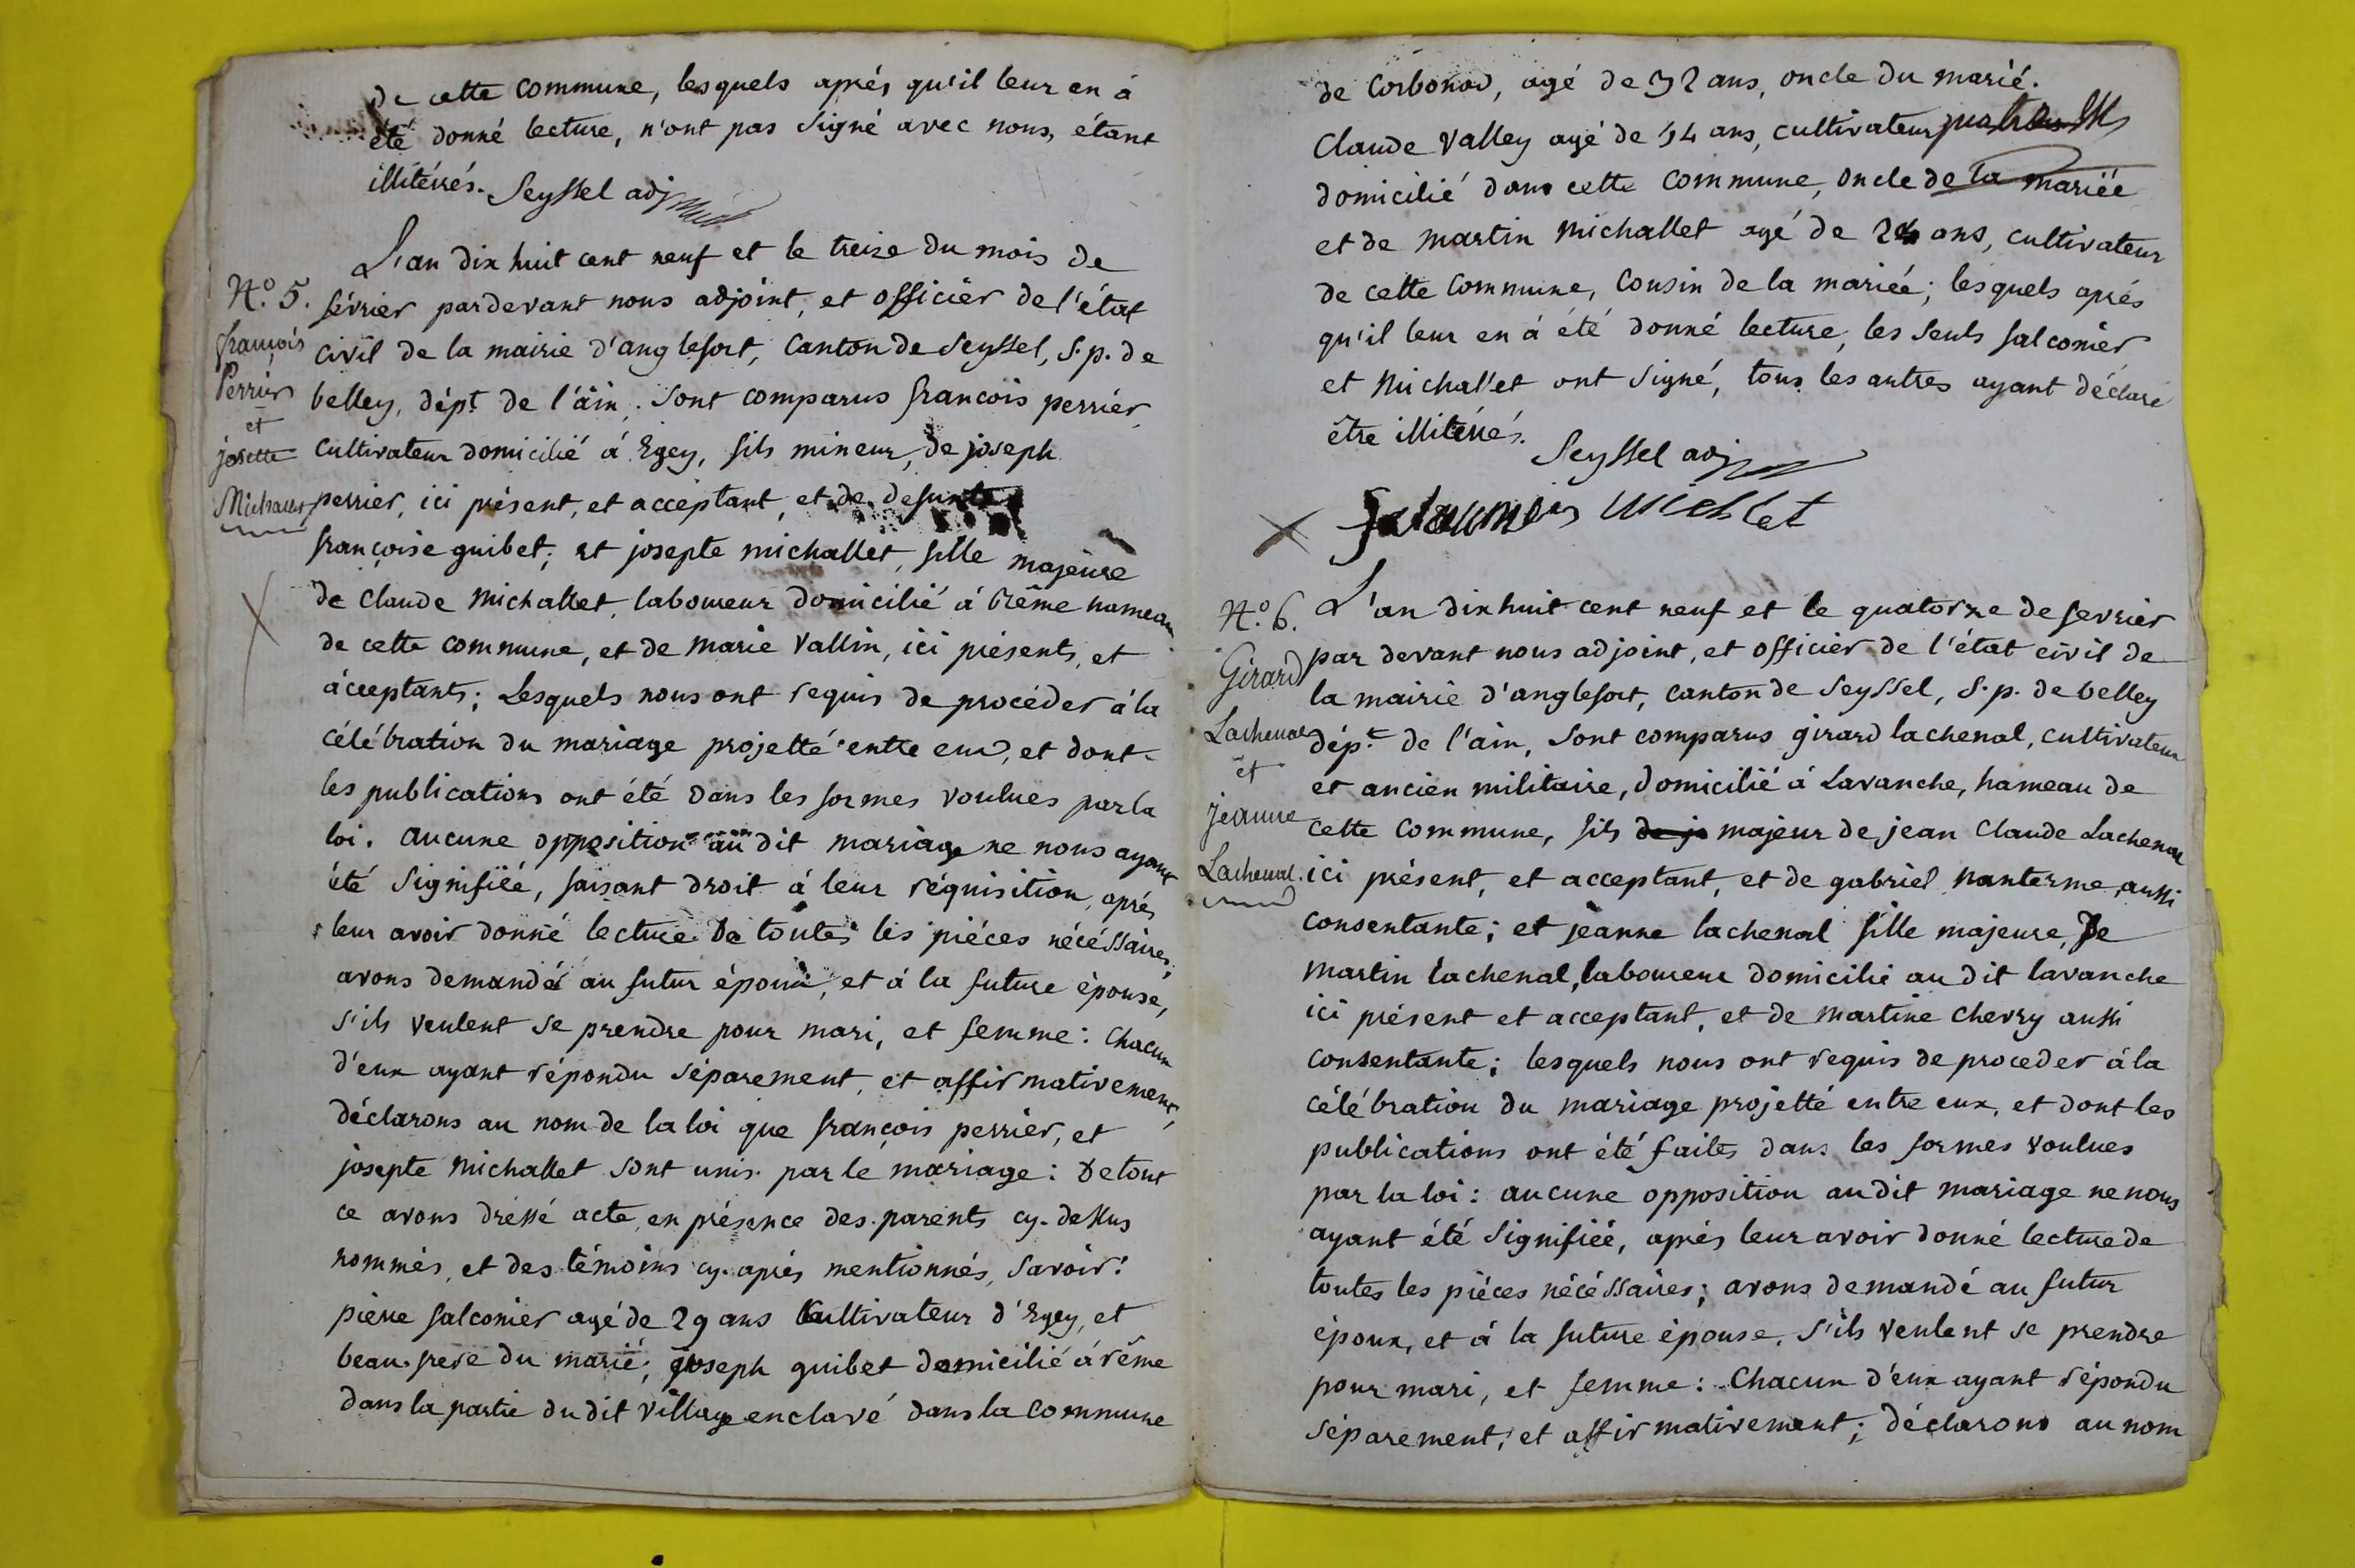 de cette commune, lesquels aprés qu'il leur en á
été donné lecture, n'ont pas signé avec nous, étant
illitérrés. Seyssel adj
N.o 5.
françois
Perrier
et
josette
L'an dix huit cent neuf et le treize du mois de
février pardevant nous adjoint, et officier de l'état
civil de la mairie d'anglefort, canton de Seyssel, S. p. de
belley, dépt de l'áin. Sont comparus francois perrier,
cultivateur domicilié á Egey, fils mineur, de joseph
perrier, ici présent, et acceptant, et de defunte
françoise guibet; et josepte michallet, fille majeure
de claude michallet, laboureur domicilié á rême hameau
de cette commune, et de marie vallin, ici présents, et
ácceptants; Lesquels nous ont requis de procéder á la
célébration du mariage projetté entre eux, et dont
les publications ont été dans les formes voulues par la
loi. aucune opposition audit mariage ne nous ayant
été signifiée, faisant droit á leur réquisition, aprés
leur avoir donné lecture de toutes les piéces nécéssaires,
avons demandé au futur époux, et á la future épouse,
s'ils veulent se prendre pour mari, et femme: chacun
d'eux ayant répondu séparement, et affirmativement,
déclarons au nom de la loi que françois perrier, et
josepte michallet sont unis par le mariage: De tout
ce avons dréssé acte, en présence des parents cy-dessus
nommés, et des témoins cy-aprés mentionnés, savoir:
piérre falconier agé de 29 ans cultivateur d'Egey, et
beau-frere du marié; joseph guibet domicilié á rême
dans la partie du dit village enclavé dans la commune
de Corbonod, agé de 32 ans, oncle du marié.
Claude Valley agé de 54 ans, cultivateur
domicilié dans cette commune, oncle de la mariée
et de martin michallet agé de 24 ans, cultivateur
de cette commune, cousin de la mariée; lesquels aprés
qu'il leur en á été donné lecture, les seuls falconiér
et michallet ont signé, tous les autres ayant déclaré
être illitérrés.
Seyssel adj
michlet
N.o 6.
Girard
Lachenal
et
jeanne
Lachenal.
L'an dix huit cent neuf et le quatorze de fevrier
par devant nous adjoint, et officier de l'état civil de
la mairie d'anglefort, canton de Seyssel, S. p. de belley
dép.t de l'ain, sont comparus girard lachenal, cultivateur
et ancien militaire, domicilié á Lavanche, hameau de
cette commune, fils de je majeur de jean claude Lachenal
ici présent, et acceptant, et de gabriel nanterme, aussi
consentante; et jeanne lachenal fille majeure, De
martin lachenal, laboureur domicilié au dit lavanche
ici présent et acceptant, et de martine cherry aussi
consentante; lesquels nous ont requis de proceder á la
célébration du mariage projetté entre eux, et dont les
publications ont été faites dans les formes voulues
par la loi: aucune opposition audit mariage ne nous
ayant été signifiée, aprés leur avoir donné lecture de
toutes les piéces nécéssaires; avons demandé au futur
époux, et á la future épouse, s'ils veulent se prendre
pour mari, et femme: Chacun d'eux ayant répondu
séparement, et affirmativement; déclarons au nom